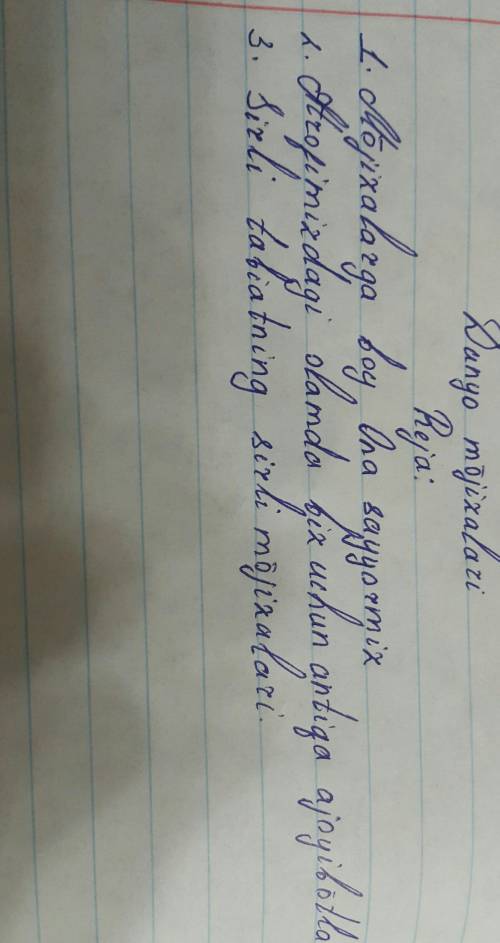 Dunyo mōjizalari
Reja:
1. Mōjizalarga boy Ona sayyormiz
2. Atrofimizdagi olamda biz uchun antiqa ajoyibōtla
3. Sirli tabiatning sirli mōjizalari.